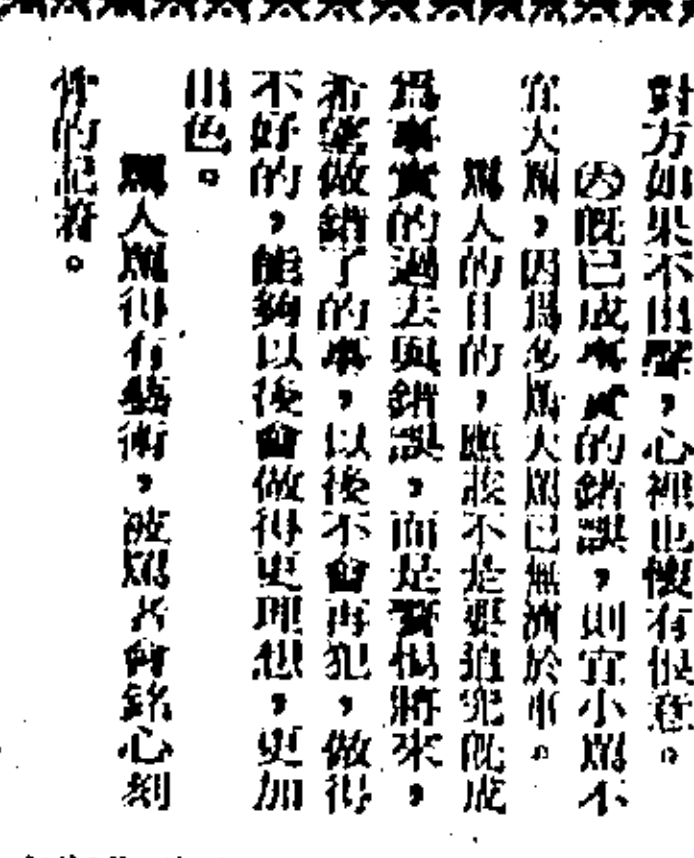 對方如果不出聲，心裡也懷有恨意。
因既已成事實的錯誤，則宜小罵不
宜大罵，因爲多罵大罵已無濟於事。
罵人的目的，應該不是要追究既成
爲事實的過去與錯誤，而是警惕將來，
希望做錯了的事，以後不會再犯，做得
不好的，能夠以後會做得更理想，更加
出色。
罵人罵得有藝術，被罵者會銘心刻
骨的記着。